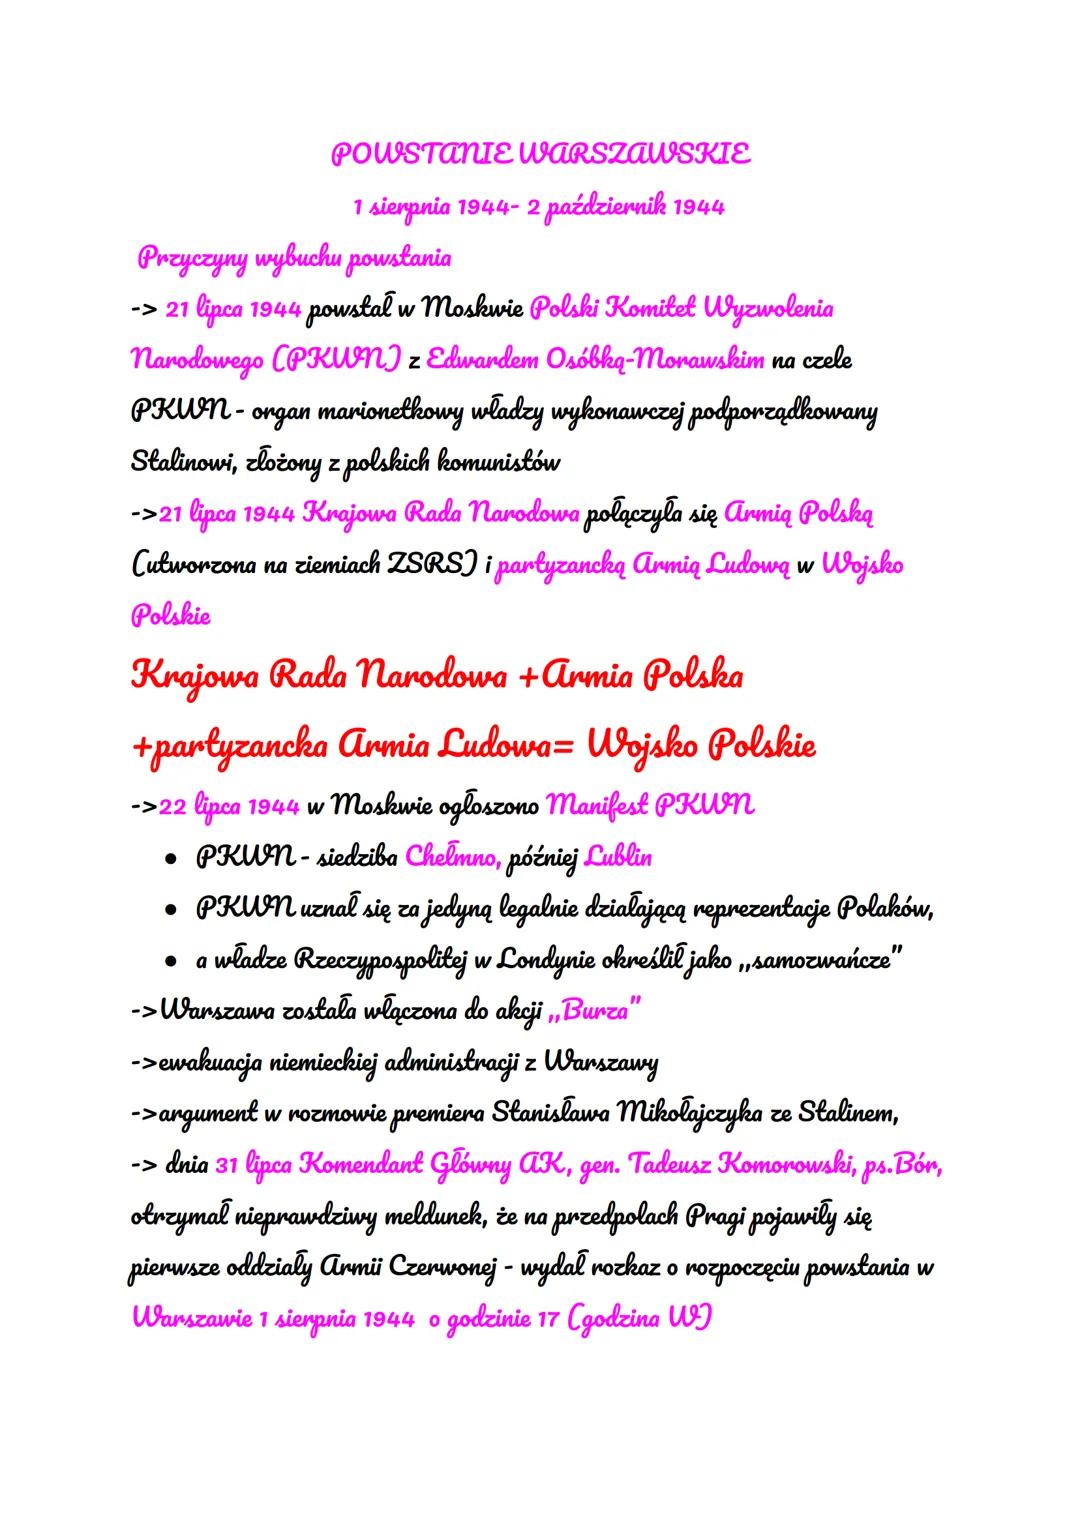 POWSTANIE WARSZAWSKIE
1 sierpnia 1944- 2 październik 1944
Przyczyny wybuchu powstania
-> 21 lipca 1944 powstał w Moskwie Polski Komitet Wyzwolenia
Narodowego (PKWN) z Edwardem Osóbką-Morawskim na czele
PKWN - organ marionetkowy władzy wykonawczej podporządkowany
Stalinowi, złożony z polskich komunistów
->21 lipca 1944 Krajowa Rada Narodowa połączyła się Armią Polską
(utworzona na ziemiach ZSRS) i partyzancką Armią Ludową w Wojsko
Polskie
Krajowa Rada Narodowa +Armia Polska
+partyzancka Armia Ludowa= Wojsko Polskie
->22 lipca 1944 w Moskwie ogłoszono Manifest PKWN
● PKWN - siedziba Chełmno, później Lublin
● PKWN uznał się za jedyną legalnie działającą reprezentacje Polaków,
● a władze Rzeczypospolitej w Londynie określił jako ,,samozwańcze"
->Warszawa została włączona do akcji ,,Burza"
->ewakuacja niemieckiej administracji z Warszawy
->argument w rozmowie premiera Stanisława Mikołajczyka ze Stalinem,
-> dnia 31 lipca Komendant Główny AK, gen. Tadeusz Komorowski, ps.Bór,
otrzymał nieprawdziwy meldunek, że na przedpolach Pragi pojawiły się
pierwsze oddziały Armii Czerwonej - wydał rozkaz o rozpoczęciu powstania w
Warszawie 1 sierpnia 1944 o godzinie 17 (godzina W)